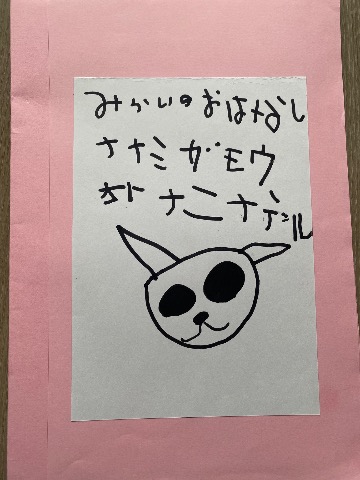 みらいのおはなし
ナナミガモウ
おトナニナデル